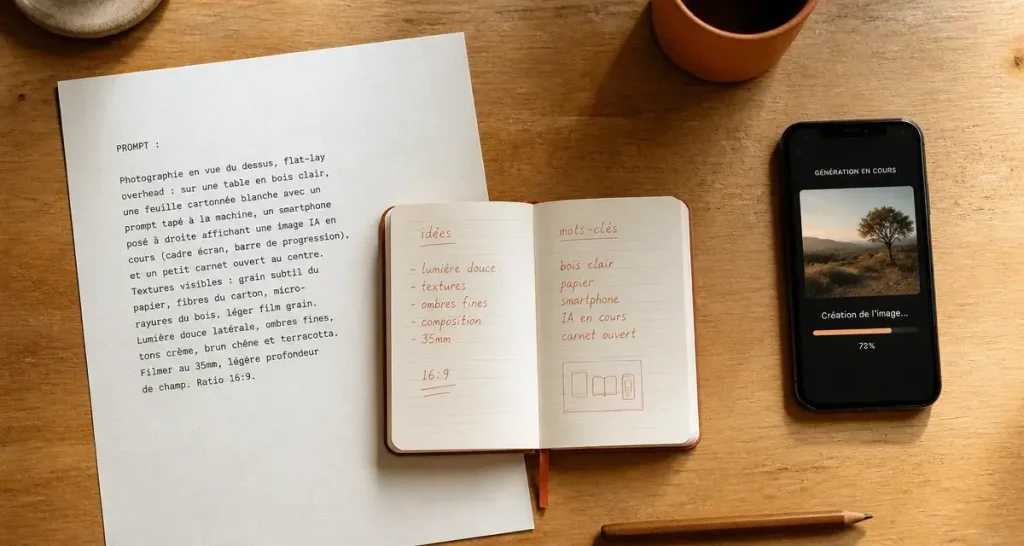 PROMPT :
Photographie en vue du dessus, flat-lay
overhead : sur une table en bois clair,
une feuille cartonnée blanche avec un
prompt tapé à la machine, un smartphone
posé à droite affichant une image IA en
cours (cadre écran, barre de progression),
et un petit carnet ouvert au centre.
Textures visibles : grain subtil du
papier, fibres du carton, micro-
rayures du bois, léger film grain.
Lumière douce latérale, ombres fines,
tons crème, brun chêne et terracotta.
Filmer au 35mm, légère profondeur
de champ. Ratio 16:9.
idées
- lumière douce
- textures
- ombres fines
- composition
- 35mm
16:9
mots-clés
bois clair
papier
smartphone
IA en cours
carnet ouvert
GÉNÉRATION EN COURS
Création de l'image...
72%